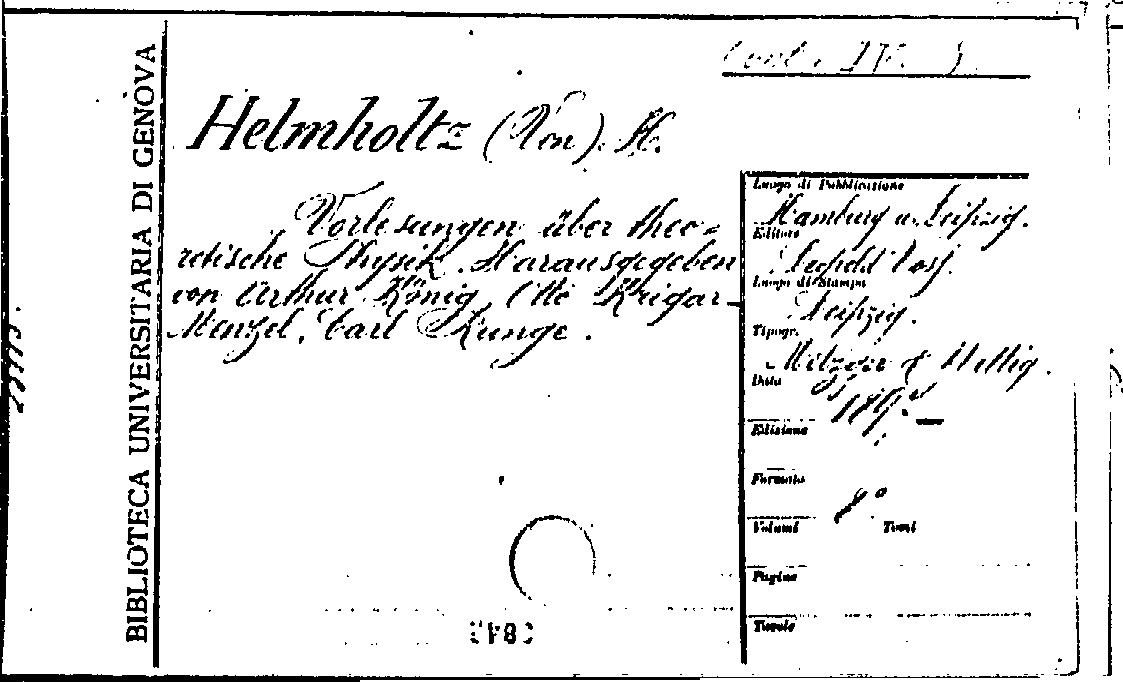 BIBLIOTECA UNIVERSITARIA DI GENOVA
Helmholtz (Von). H.
Vorlesungen über theo-
retische Physik. Harausgegeben
von Arthur König, Otto Krigar-
Menzel, Carl Runge.
Luogo di Pubblicazione
Hamburg u. Leipzig.
Editore
Leopold Voss.
Luogo di Stampa
Leipzig.
Tipogr.
Metzger & Wittig.
Data
Edizione
Formato
8°
Volumi Tomi
Pagine
Tavole